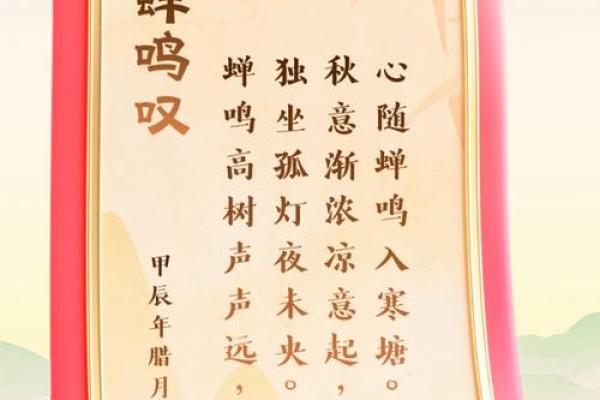 蝉鸣叹
蝉鸣高树声声远，
独坐孤灯夜未央。
秋意渐浓凉意起，
心随蝉鸣入寒塘。
甲辰年腊月